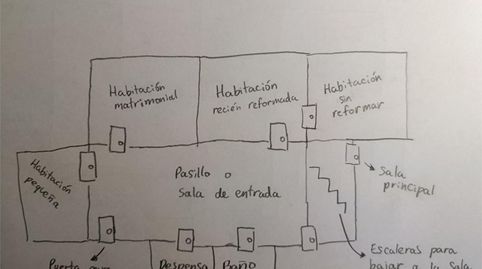 Habitación
matrimonial
Habitación
recién reformada
Habitación
sin
reformar
Habitación
pequeña
Pasillo o
Sala de entrada
Sala
principal
Escaleras para
bajar a la sala
Puerta
Despensa
Baño